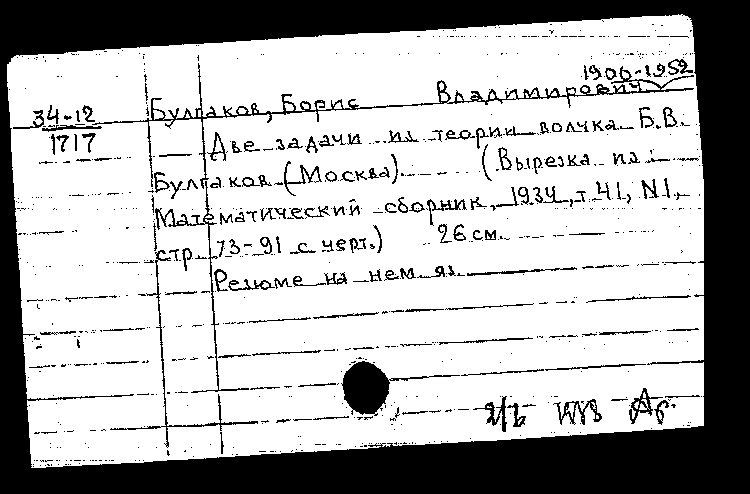 1900-1952
34-12 Булгаков, Борис Владимирович
1717 Две задачи из теории волчка Б.В.
Булгаков (Москва). (Вырезка из:
Математический сборник, 1934, т 41, N1,
стр. 73-91 с черт.) 26 см.
Резюме на нем. яз.